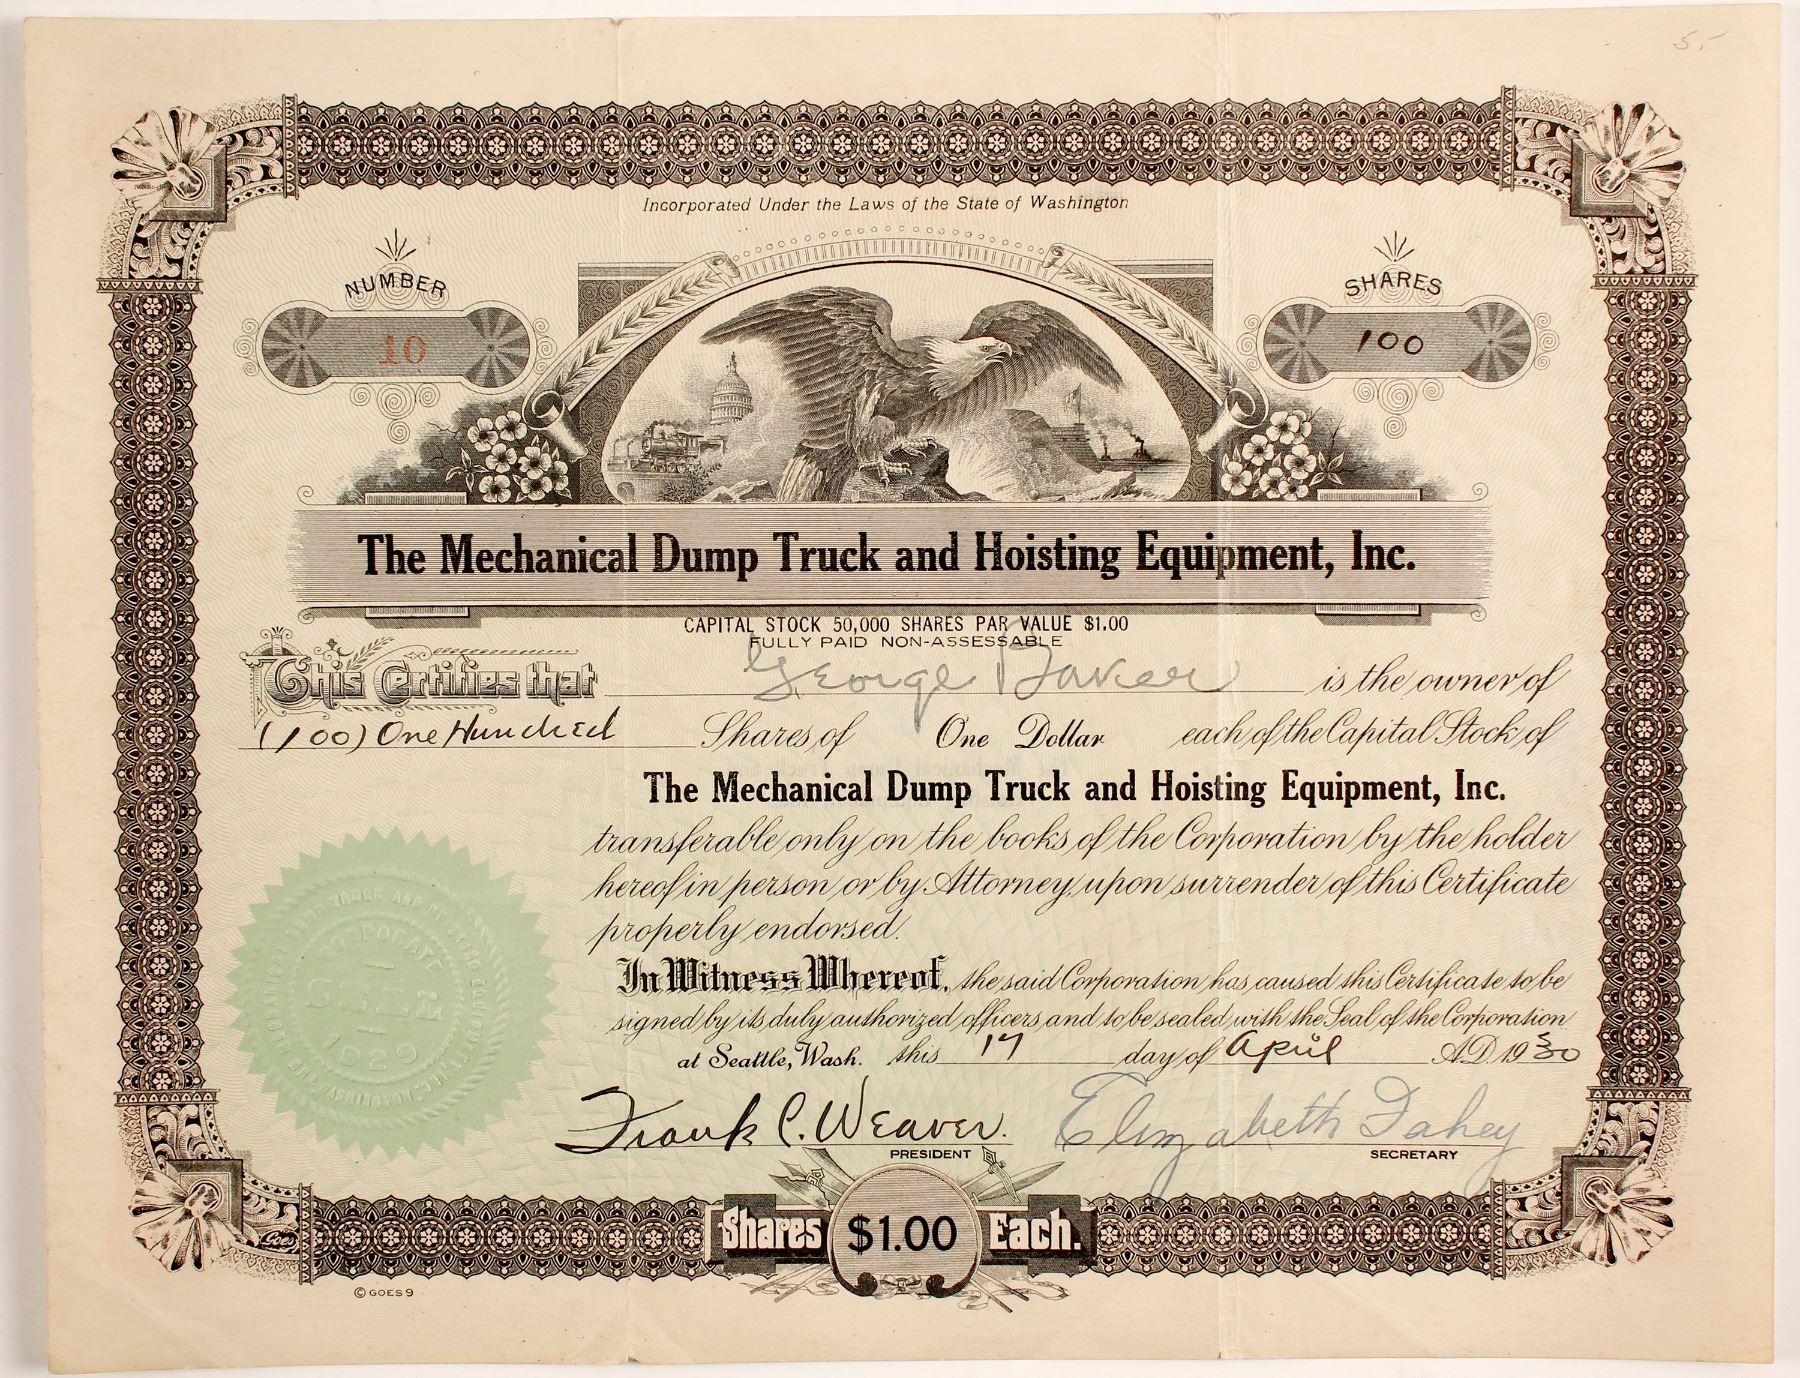 5.-
Incorporated Under the Laws of the State of Washington
NUMBER
10
SHARES
100
The Mechanical Dump Truck and Hoisting Equipment, Inc.
CAPITAL STOCK 50,000 SHARES PAR VALUE $1.00
FULLY PAID NON-ASSESSABLE
This Certifies that George Baker is the owner of
(100) One Hundred Shares of One Dollar each of the Capital Stock of
The Mechanical Dump Truck and Hoisting Equipment, Inc.
transferable only on the books of the Corporation by the holder
hereof in person or by Attorney, upon surrender of this Certificate
properly endorsed.
In Witness Whereof, the said Corporation has caused this Certificate to be
signed by its duly authorized officers and to be sealed with the Seal of the Corporation
at Seattle, Wash. this 17 day of April A.D. 1930
CORPORATE
SEAL
1929
Frank C. Weaver.
PRESIDENT
Elizabeth Fahey
SECRETARY
Shares $1.00 Each.
Goes
© GOES 9